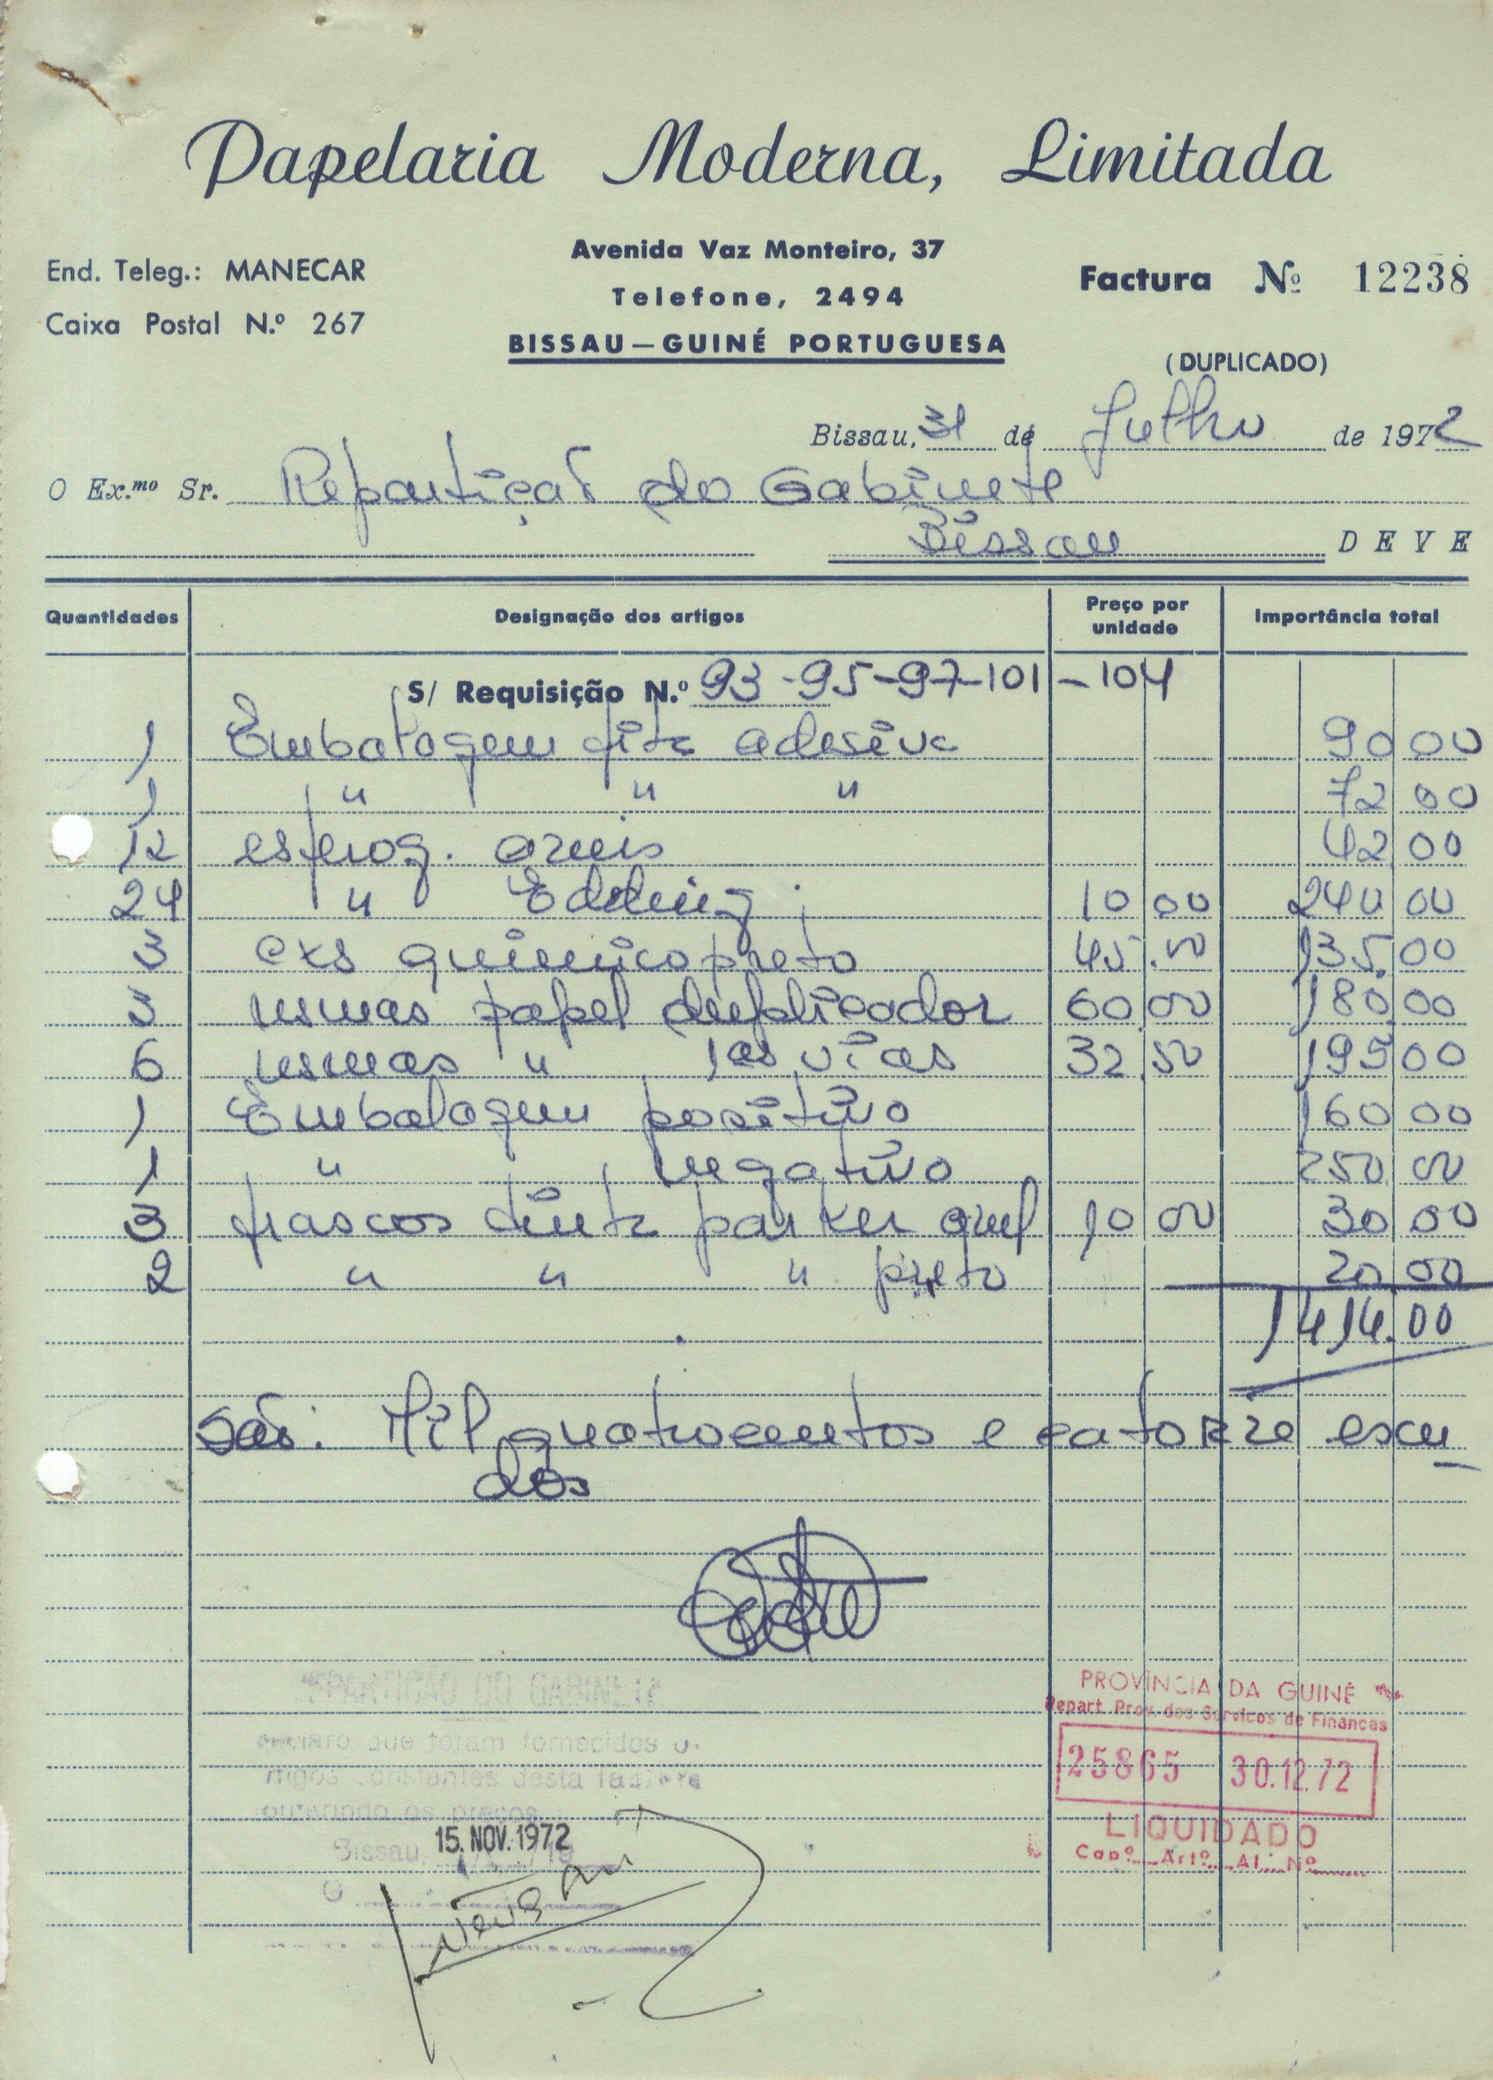 Papelaria Moderna, Limitada
Avenida Vaz Monteiro, 37
End. Teleg.: MANECAR
Telefone, 2494
Factura Nº 12238
Caixa Postal N.º 267
BISSAU — GUINÉ PORTUGUESA
(DUPLICADO)
Bissau, 31 de Julho de 1972
O Ex.mo Sr. Repartição do Gabinete
Bissau DEVE
Quantidades Designação dos artigos Preço por unidade Importância total
S/ Requisição N.º 93-95-97-101-104
1 Embalagem fita adesiva 90 00
1 " " " 72 00
12 esferog. azuis 42 00
24 " Edding 10 00 240 00
3 cxs quimico preto 45.00 135.00
3 resmas papel duplicador 60 00 180.00
6 resmas " 1as vias 32 50 195 00
1 Embalagem positivo 160 00
1 " negativo 250 00
3 frascos tinta parker azul 10 00 30 00
2 " " " preto 20.00
1414.00
São: Mil quatrocentos e catorze escu
dos
PARTIÇÃO DO GABINETE
que foram fornecidos
constantes desta factura
os preços
Bissau, 15. NOV. 1972
O
PROVÍNCIA DA GUINÉ
Repart. Prov. dos Serviços de Finanças
25865 30.12.72
LIQUIDADO
Capº Artº Al. Nº